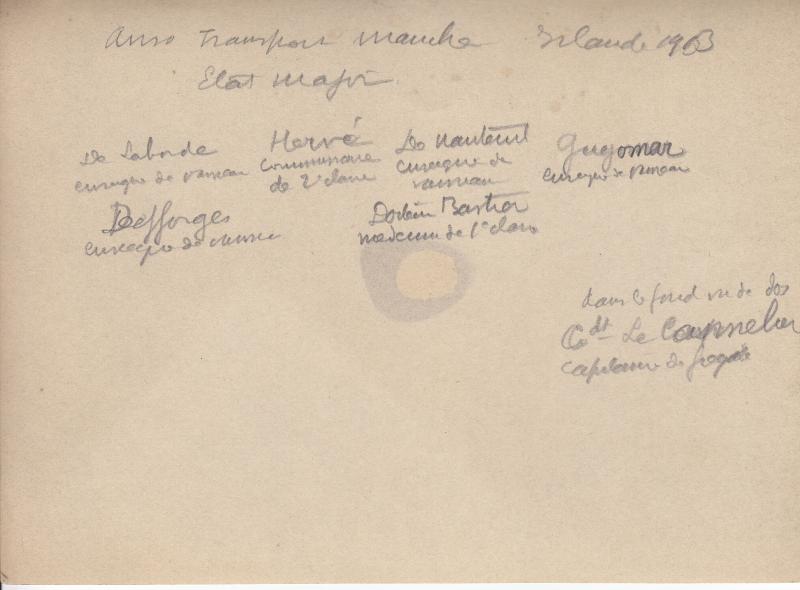 Aviso Transport Manche Islande 1903
Etat Major
De Laborde
enseigne de vaisseau
Hervé
Commissaire
de 2e classe
De Nanteuil
enseigne de
vaisseau
Guyomar
enseigne de vaisseau
Desforges
enseigne de vaisseau
Bastier
médecin de 1e classe
dans le fond vu de dos
Cdt Le
capitaine de frégate